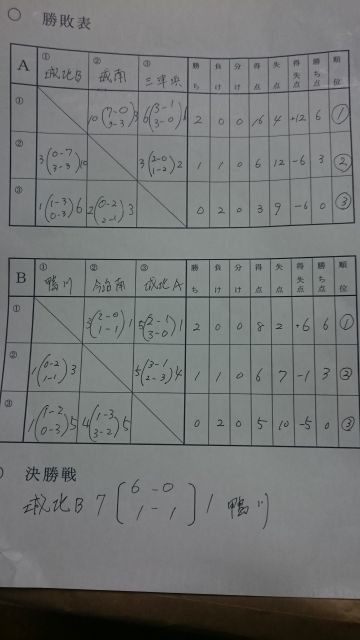 ○ 勝敗表
A ① 城北B ② 城南 ③ 三津浜 勝ち 負け 分け 得点 失点 得失点 勝ち点 順位
① 10(7-0 3-3)3 6(3-1 3-0)1 2 0 0 16 4 +12 6 ①
② 3(0-7 3-3)10 3(2-0 1-2)2 1 1 0 6 12 -6 3 ②
③ 1(1-3 0-3)6 2(0-2 2-1)3 0 2 0 3 9 -6 0 ③
B ① 鴨川 ② 今治南 ③ 城北A 勝ち 負け 分け 得点 失点 得失点 勝ち点 順位
① 3(2-0 1-1)1 5(2-1 3-0)1 2 0 0 8 2 +6 6 ①
② 1(0-2 1-1)3 5(3-1 2-3)4 1 1 0 6 7 -1 3 ②
③ 1(1-2 0-3)5 4(1-3 3-2)5 0 2 0 5 10 -5 0 ③
決勝戦
城北B 7 [6-0 1-1] 1 鴨川